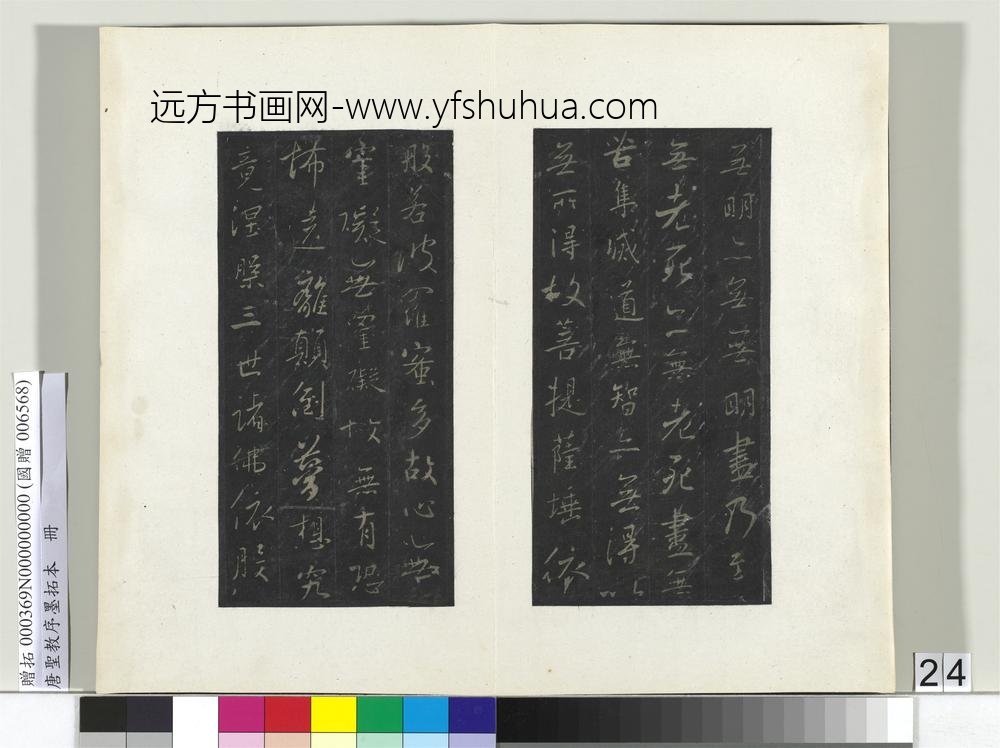 远方书画网-www.yfshuhua.com
無明亦無無明盡乃至
無老死亦無老死盡無
苦集滅道無智亦無得以
無所得故菩提薩埵依
般若波羅蜜多故心無
罣礙無罣礙故無有恐
怖遠離顛倒夢想究
竟涅槃三世諸佛依般
贈拓 000369N000000000 (國贈 006568)
唐聖教序墨拓本 冊
24